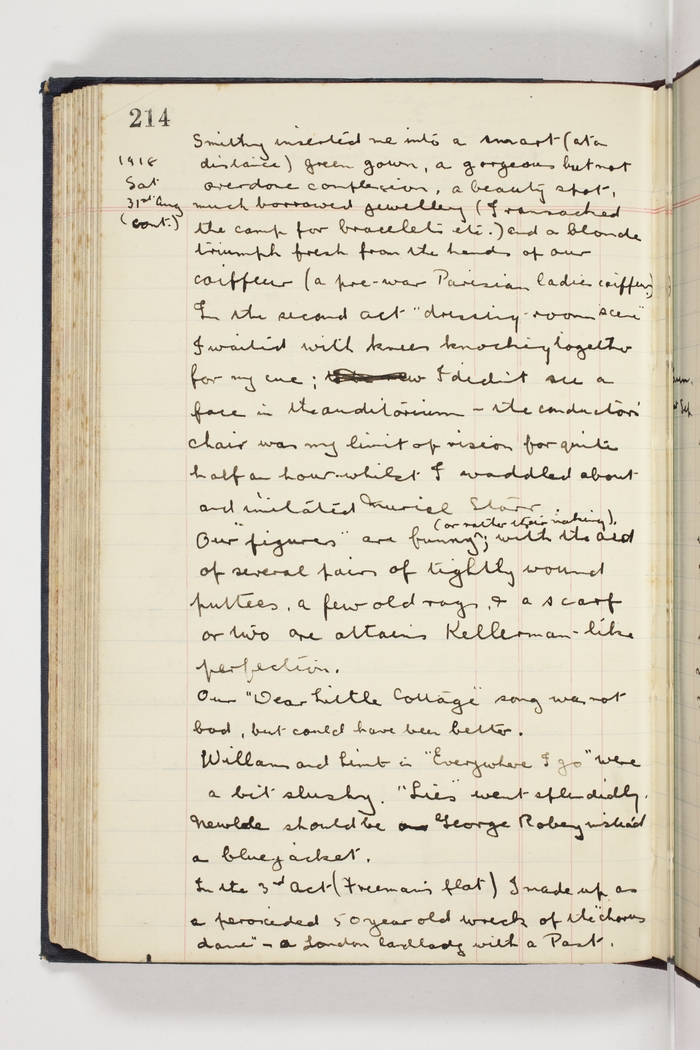 214
1918
Sat
31st Aug
(cont.)
Smithy inserted me into a smart (at a
distance) green gown, a gorgeous but not
overdone complexion, a beauty spot,
much borrowed jewellery (I ransacked
the camp for bracelets etc.) and a blonde
triumph fresh from the hands of our
coiffeur (a pre-war Parisian ladies coiffeur)
In the second act "dressing-room scene"
I waited with knees knocking together
for my cue; I didn't see a
face in the auditorium – the conductors'
chair was my limit of vision for quite
half an hour whilst I waddled about
and imitated Muriel Starr.
(or rather their making).
Our "figures" are funny; with the aid
of several pairs of tightly wound
puttees, a few old rags, & a scarf
or two one attains Kellerman-like
perfection.
Our "Dear Little Cottage" song was not
bad, but could have been better.
Willams and Limb in "Everywhere I go" were
a bit slushy. "Lies" went splendidly.
Newlde should be George Robey instead
a bluejacket.
In the 3rd Act (Freeman's flat) I made up as
a peroxided 50 year old wreck of the "chorus
dame" – a London landlady with a Past.